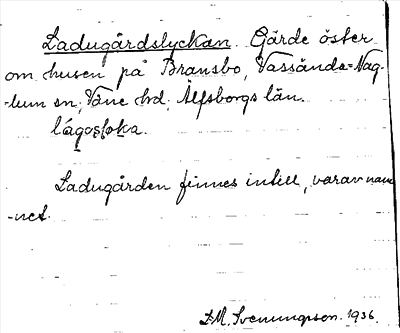 Ladugårdslyckan. Gärde öster
om husen på Bransbo, Vassända=Nag-
-lum sn; Väne hd, Älfsborgs län.
Ladugården finnes intill, varav nam-
-net.
D.M. Svenungsson. 1936.